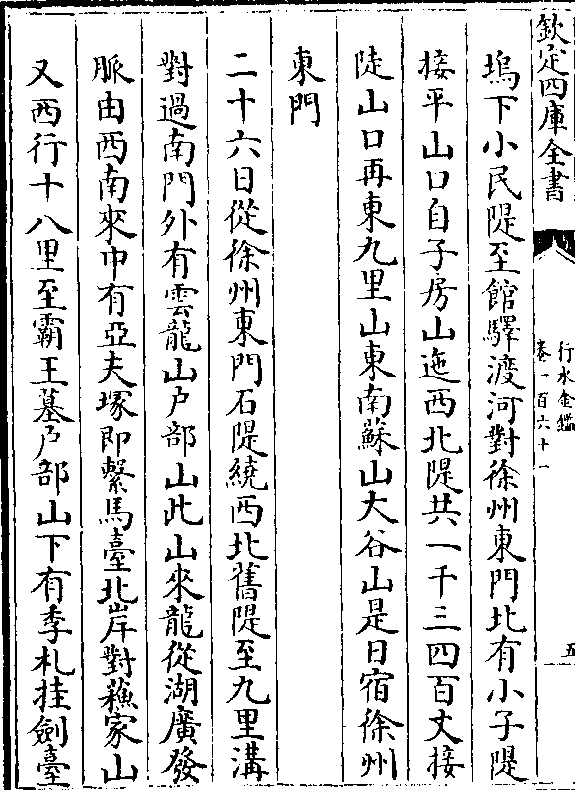 欽定四庫全書
行水金鑑
卷一百六十一
五
塢下小民隄至館驛渡河對徐州東門北有小子隄
接平山口自子房山迤西北隄共一千三四百丈接
陡山口再東九里山東南蘇山大谷山是日宿徐州
東門
二十六日從徐州東門石隄繞西北舊隄至九里溝
對過南門外有雲龍山户部山此山來龍從湖廣發
脈由西南來中有亞夫塚即繫馬臺北岸對蘓家山
又西行十八里至霸王墓户部山下有季札挂劍臺